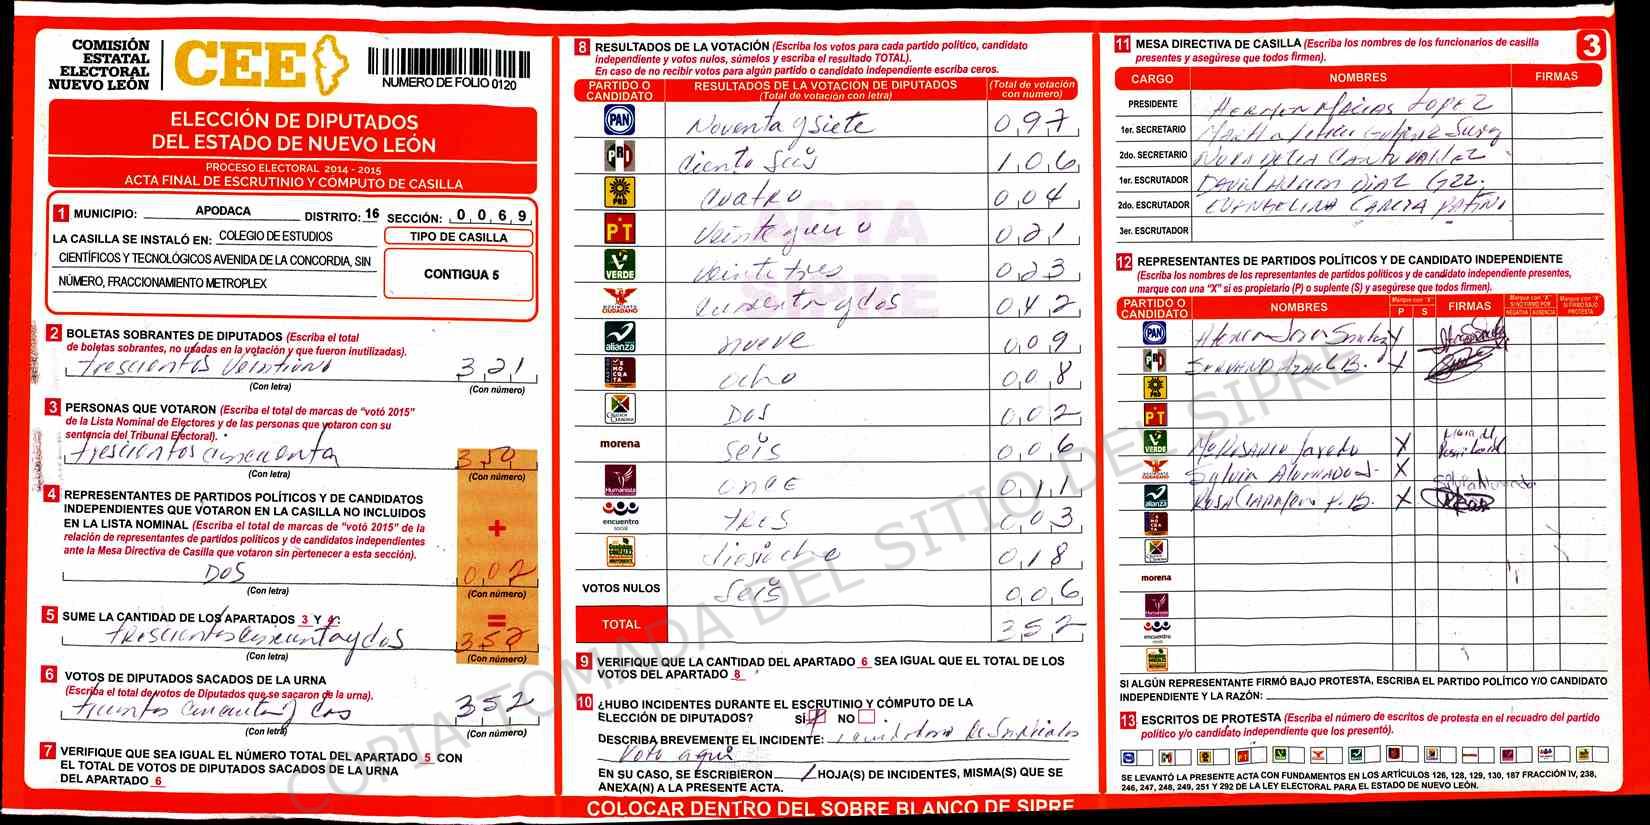 COMISIÓN
ESTATAL
ELECTORAL
NUEVO LEÓN
CEE
NUMERO DE FOLIO 0120
ELECCIÓN DE DIPUTADOS
DEL ESTADO DE NUEVO LEÓN
PROCESO ELECTORAL 2014 - 2015
ACTA FINAL DE ESCRUTINIO Y CÓMPUTO DE CASILLA
1 MUNICIPIO: APODACA DISTRITO: 16 SECCIÓN: 0 0 6 9
LA CASILLA SE INSTALÓ EN: COLEGIO DE ESTUDIOS
CIENTÍFICOS Y TECNOLÓGICOS AVENIDA DE LA CONCORDIA, SIN
NÚMERO, FRACCIONAMIENTO METROPLEX
TIPO DE CASILLA
CONTIGUA 5
2 BOLETAS SOBRANTES DE DIPUTADOS (Escriba el total
de boletas sobrantes, no usadas en la votación y que fueron inutilizadas).
trescientos veintiuno 3 2 1
(Con letra) (Con número)
3 PERSONAS QUE VOTARON (Escriba el total de marcas de "votó 2015"
de la Lista Nominal de Electores y de las personas que votaron con su
sentencia del Tribunal Electoral).
trescientos cincuenta 3 5 0
(Con letra) (Con número)
4 REPRESENTANTES DE PARTIDOS POLÍTICOS Y DE CANDIDATOS
INDEPENDIENTES QUE VOTARON EN LA CASILLA NO INCLUIDOS
EN LA LISTA NOMINAL (Escriba el total de marcas de "votó 2015" de la
relación de representantes de partidos políticos y de candidatos independientes
ante la Mesa Directiva de Casilla que votaron sin pertenecer a esta sección).
+
DOS 0 0 2
(Con letra) (Con número)
5 SUME LA CANTIDAD DE LOS APARTADOS 3 Y 4:
=
trescientos cincuenta y dos 3 5 2
(Con letra) (Con número)
6 VOTOS DE DIPUTADOS SACADOS DE LA URNA
(Escriba el total de votos de Diputados que se sacaron de la urna).
cincuenta y dos 3 5 2
(Con letra) (Con número)
7 VERIFIQUE QUE SEA IGUAL EL NÚMERO TOTAL DEL APARTADO 5 CON
EL TOTAL DE VOTOS DE DIPUTADOS SACADOS DE LA URNA
DEL APARTADO 6
8 RESULTADOS DE LA VOTACIÓN (Escriba los votos para cada partido político, candidato
independiente y votos nulos, súmelos y escriba el resultado TOTAL).
En caso de no recibir votos para algún partido o candidato independiente escriba ceros.
PARTIDO O CANDIDATO
RESULTADOS DE LA VOTACIÓN DE DIPUTADOS
(Total de votación con letra)
(Total de votación con número)
PAN Noventa y siete 0 9 7
PRI Ciento Seis 1 0 6
PRD Cuatro 0 0 4
PT Veinte y uno 0 2 1
VERDE Veinte tres 0 2 3
MOVIMIENTO CIUDADANO Cuarenta y dos 0 4 2
alianza nueve 0 0 9
ocho 0 0 8
DOS 0 0 2
morena seis 0 0 6
Humanista once 0 1 1
encuentro social TRES 0 0 3
dieciocho 0 1 8
VOTOS NULOS Seis 0 0 6
TOTAL 3 5 2
ACTA
SIPRE
9 VERIFIQUE QUE LA CANTIDAD DEL APARTADO 6 SEA IGUAL QUE EL TOTAL DE LOS
VOTOS DEL APARTADO 8
10 ¿HUBO INCIDENTES DURANTE EL ESCRUTINIO Y CÓMPUTO DE LA
ELECCIÓN DE DIPUTADOS? SÍ X NO
DESCRIBA BREVEMENTE EL INCIDENTE:
Voto aquí
EN SU CASO, SE ESCRIBIERON 1 HOJA(S) DE INCIDENTES, MISMA(S) QUE SE
ANEXA(N) A LA PRESENTE ACTA.
COLOCAR DENTRO DEL SOBRE BLANCO DE SIPRE
3
11 MESA DIRECTIVA DE CASILLA (Escriba los nombres de los funcionarios de casilla
presentes y asegúrese que todos firmen).
CARGO NOMBRES FIRMAS
PRESIDENTE Macias Lopez
1er. SECRETARIO
2do. SECRETARIO
1er. ESCRUTADOR David DIAZ GZZ.
2do. ESCRUTADOR EVANGELINA GARCIA PATIÑO
3er. ESCRUTADOR
12 REPRESENTANTES DE PARTIDOS POLÍTICOS Y DE CANDIDATO INDEPENDIENTE
(Escriba los nombres de los representantes de partidos políticos y de candidato independiente presentes,
marque con una "X" si es propietario (P) o suplente (S) y asegúrese que todos firmen).
PARTIDO O CANDIDATO NOMBRES Marque con "X" P S FIRMAS Marque con "X" SI NO FIRMÓ POR NEGATIVA AUSENCIA Marque con "X" SI FIRMÓ BAJO PROTESTA
PAN X
PRI X
PRD
PT
VERDE X
Sylvia Alvarado X
alianza Rosa X
morena
Humanista
encuentro social
SI ALGÚN REPRESENTANTE FIRMÓ BAJO PROTESTA, ESCRIBA EL PARTIDO POLÍTICO Y/O CANDIDATO
INDEPENDIENTE Y LA RAZÓN:
13 ESCRITOS DE PROTESTA (Escriba el número de escritos de protesta en el recuadro del partido
político y/o candidato independiente que los presentó).
SE LEVANTÓ LA PRESENTE ACTA CON FUNDAMENTOS EN LOS ARTÍCULOS 126, 128, 129, 130, 187 FRACCIÓN IV, 238,
246, 247, 248, 249, 251 Y 292 DE LA LEY ELECTORAL PARA EL ESTADO DE NUEVO LEÓN.
COPIA TOMADA DEL SITIO DEL SIPRE